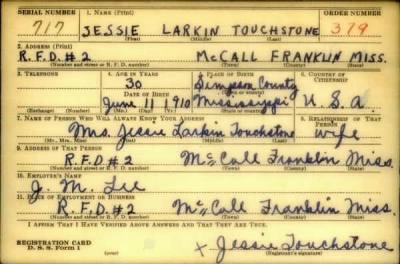 SERIAL NUMBER 1. NAME (Print) ORDER NUMBER
717 JESSIE LARKIN TOUCHSTONE 379
(First) (Middle) (Last)
2. ADDRESS (Print)
R.F.D. #2 McCALL FRANKLIN MISS.
(Number and street or R. F. D. number) (Town) (County) (State)
3. TELEPHONE 4. AGE IN YEARS 5. PLACE OF BIRTH 6. COUNTRY OF CITIZENSHIP
30 Simpson County
DATE OF BIRTH
June 11 1910 Mississippi U.S.A.
(Exchange) (Number) (Mo.) (Day) (Yr.) (State or country)
7. NAME OF PERSON WHO WILL ALWAYS KNOW YOUR ADDRESS 8. RELATIONSHIP OF THAT PERSON
Mrs. Jessie Larkin Touchstone wife
(Mr., Mrs., Miss) (First) (Middle) (Last)
9. ADDRESS OF THAT PERSON
R.F.D #2 McCall Franklin Miss.
(Number and street or R. F. D. number) (Town) (County) (State)
10. EMPLOYER'S NAME
J. M. Lee
11. PLACE OF EMPLOYMENT OR BUSINESS
R.F.D #2 McCall Franklin Miss.
(Number and street or R. F. D. number) (Town) (County) (State)
I AFFIRM THAT I HAVE VERIFIED ABOVE ANSWERS AND THAT THEY ARE TRUE.
REGISTRATION CARD
D. S. S. Form 1 x Jessie Touchstone
(Registrant's signature)